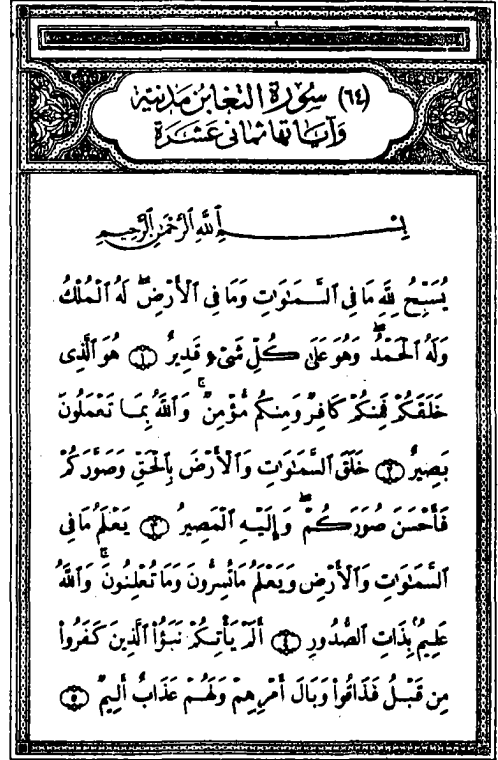 (٦٤) سُورَةُ النَّغَابُنِ مَدَنِيَّة
وَآيَاتُهَا ثَمَانِي عَشَرَة
بِسْمِ ٱللَّهِ ٱلرَّحْمَٰنِ ٱلرَّحِيمِ
يُسَبِّحُ لِلَّهِ مَا فِى ٱلسَّمَٰوَٰتِ وَمَا فِى ٱلْأَرْضِۖ لَهُ ٱلْمُلْكُ
وَلَهُ ٱلْحَمْدُۖ وَهُوَ عَلَىٰ كُلِّ شَىْءٍ قَدِيرٌ ۝١ هُوَ ٱلَّذِى
خَلَقَكُمْ فَمِنكُمْ كَافِرٌ وَمِنكُم مُّؤْمِنٌۚ وَٱللَّهُ بِمَا تَعْمَلُونَ
بَصِيرٌ ۝٢ خَلَقَ ٱلسَّمَٰوَٰتِ وَٱلْأَرْضَ بِٱلْحَقِّ وَصَوَّرَكُمْ
فَأَحْسَنَ صُوَرَكُمْۖ وَإِلَيْهِ ٱلْمَصِيرُ ۝٣ يَعْلَمُ مَا فِى
ٱلسَّمَٰوَٰتِ وَٱلْأَرْضِ وَيَعْلَمُ مَا تُسِرُّونَ وَمَا تُعْلِنُونَۚ وَٱللَّهُ
عَلِيمٌۢ بِذَاتِ ٱلصُّدُورِ ۝٤ أَلَمْ يَأْتِكُمْ نَبَؤُا۟ ٱلَّذِينَ كَفَرُوا۟
مِن قَبْلُ فَذَاقُوا۟ وَبَالَ أَمْرِهِمْ وَلَهُمْ عَذَابٌ أَلِيمٌ ۝٥